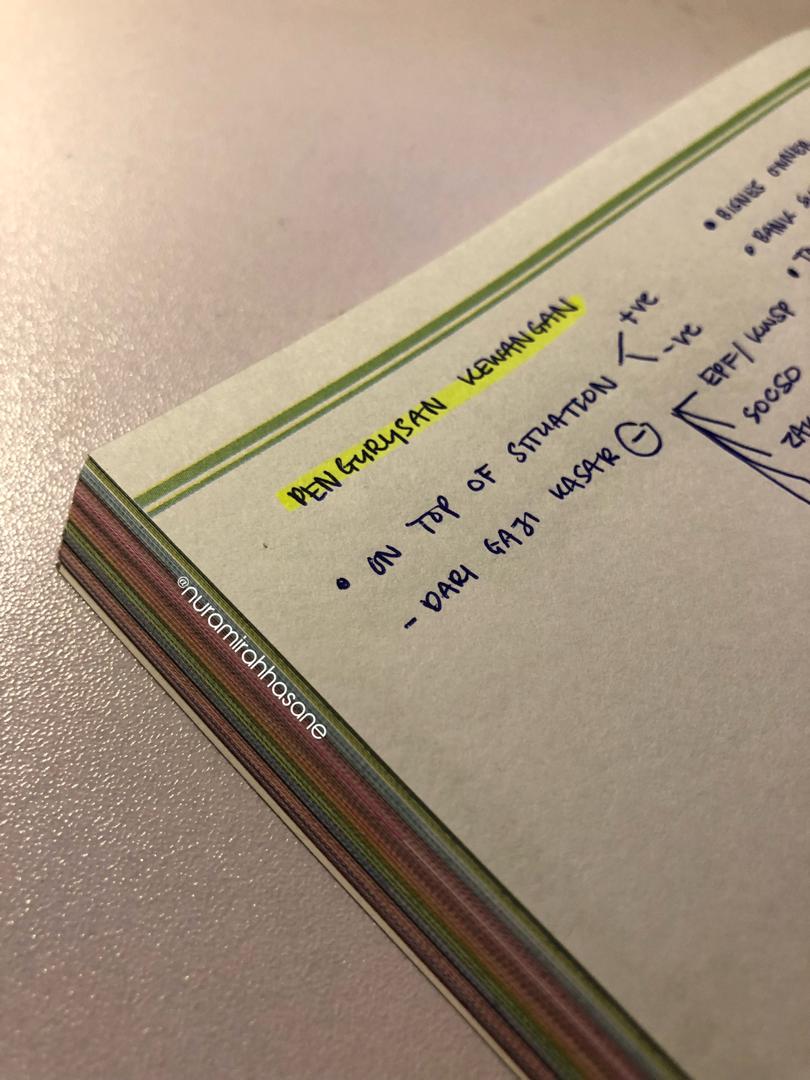 PENGURUSAN KEWANGAN
• ON TOP OF SITUATION +ve
-ve
- DARI GAJI KASAR ⊖ EPF/ KWSP
SOCSO
• BISNES OWNER
• BANK
@nuramirahhasane